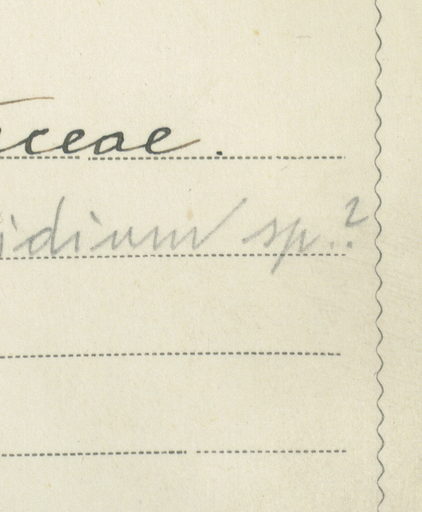 aceae.
idium sp.?